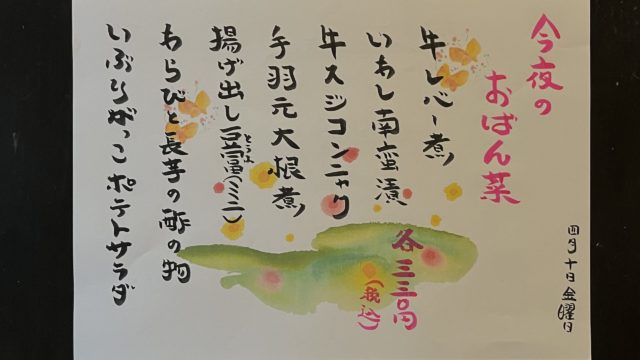 四月十日金曜日
今夜の
おばん菜
牛レバー煮
いわし南蛮漬
牛スジコンニャク
手羽元大根煮
揚げ出し豆富(ミニ)
とうふ
わらびと長芋の酢の物
いぶりがっこポテトサラダ
各三三〇円
(税込)